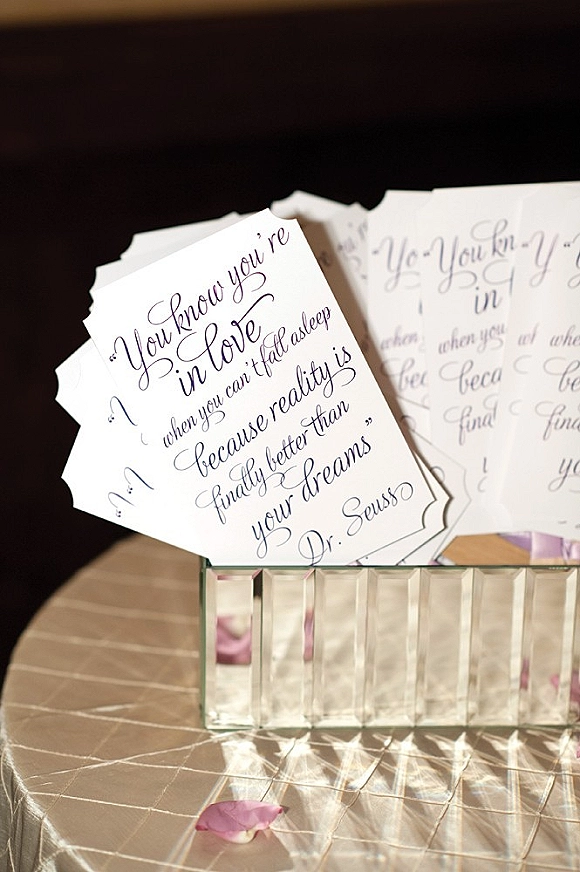 “You know you're
in love
when you can't fall asleep
because reality is
finally better than
your dreams”
Dr. Seuss
“Yo
“You kn
in
when you
beca
final
y
when
bec
fina